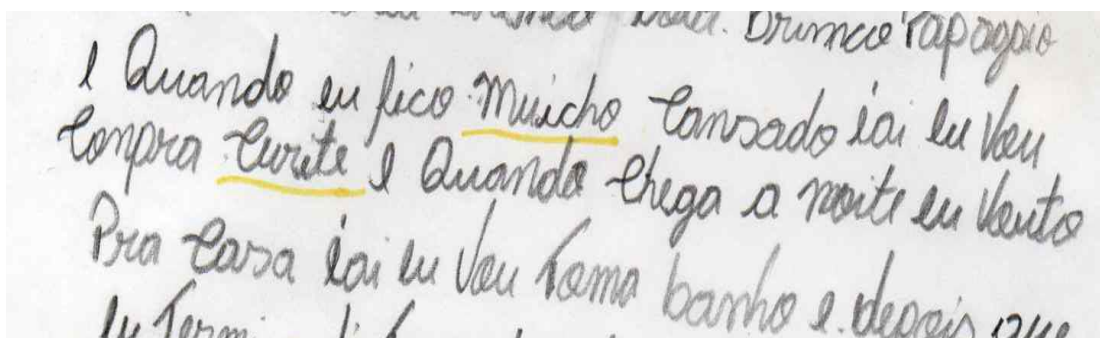 Brinca Papagaio
e Quando eu fico muicho Cansado iai eu Vou
Conpra Curete e Quando Chega a noite eu Vouto
Pra Casa iai eu Vou Toma banho e. depois que
eu Termi